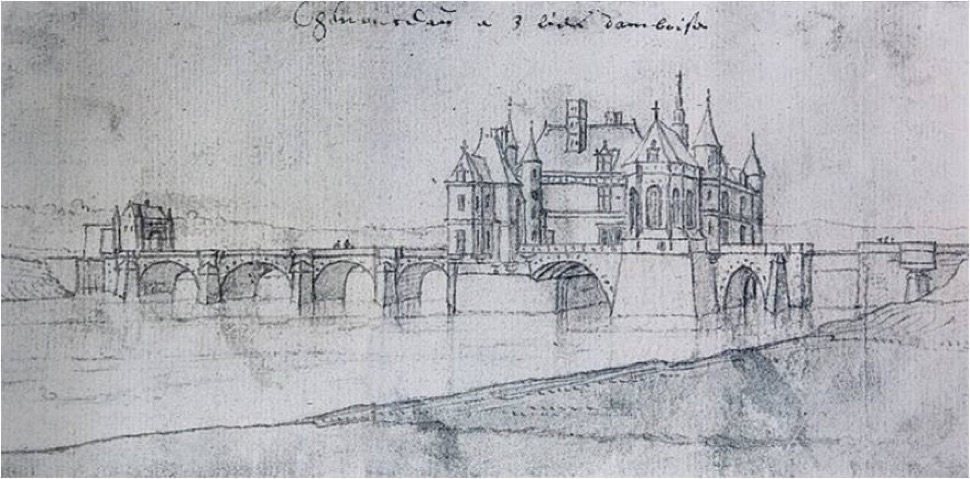 Chenonceau a 3 lieu damboise